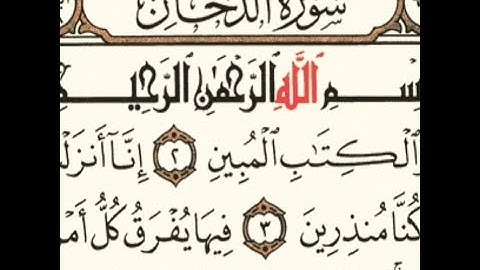 سورة الدخان
ـسم الله الرحمن الرحيـ
والكِتَٰبِ المُبِينِ ٢ إِنَّآ أَنزَلْـ
كُنَّا مُنذِرِينَ ٣ فِيهَا يُفْرَقُ كُلُّ أَمْـ